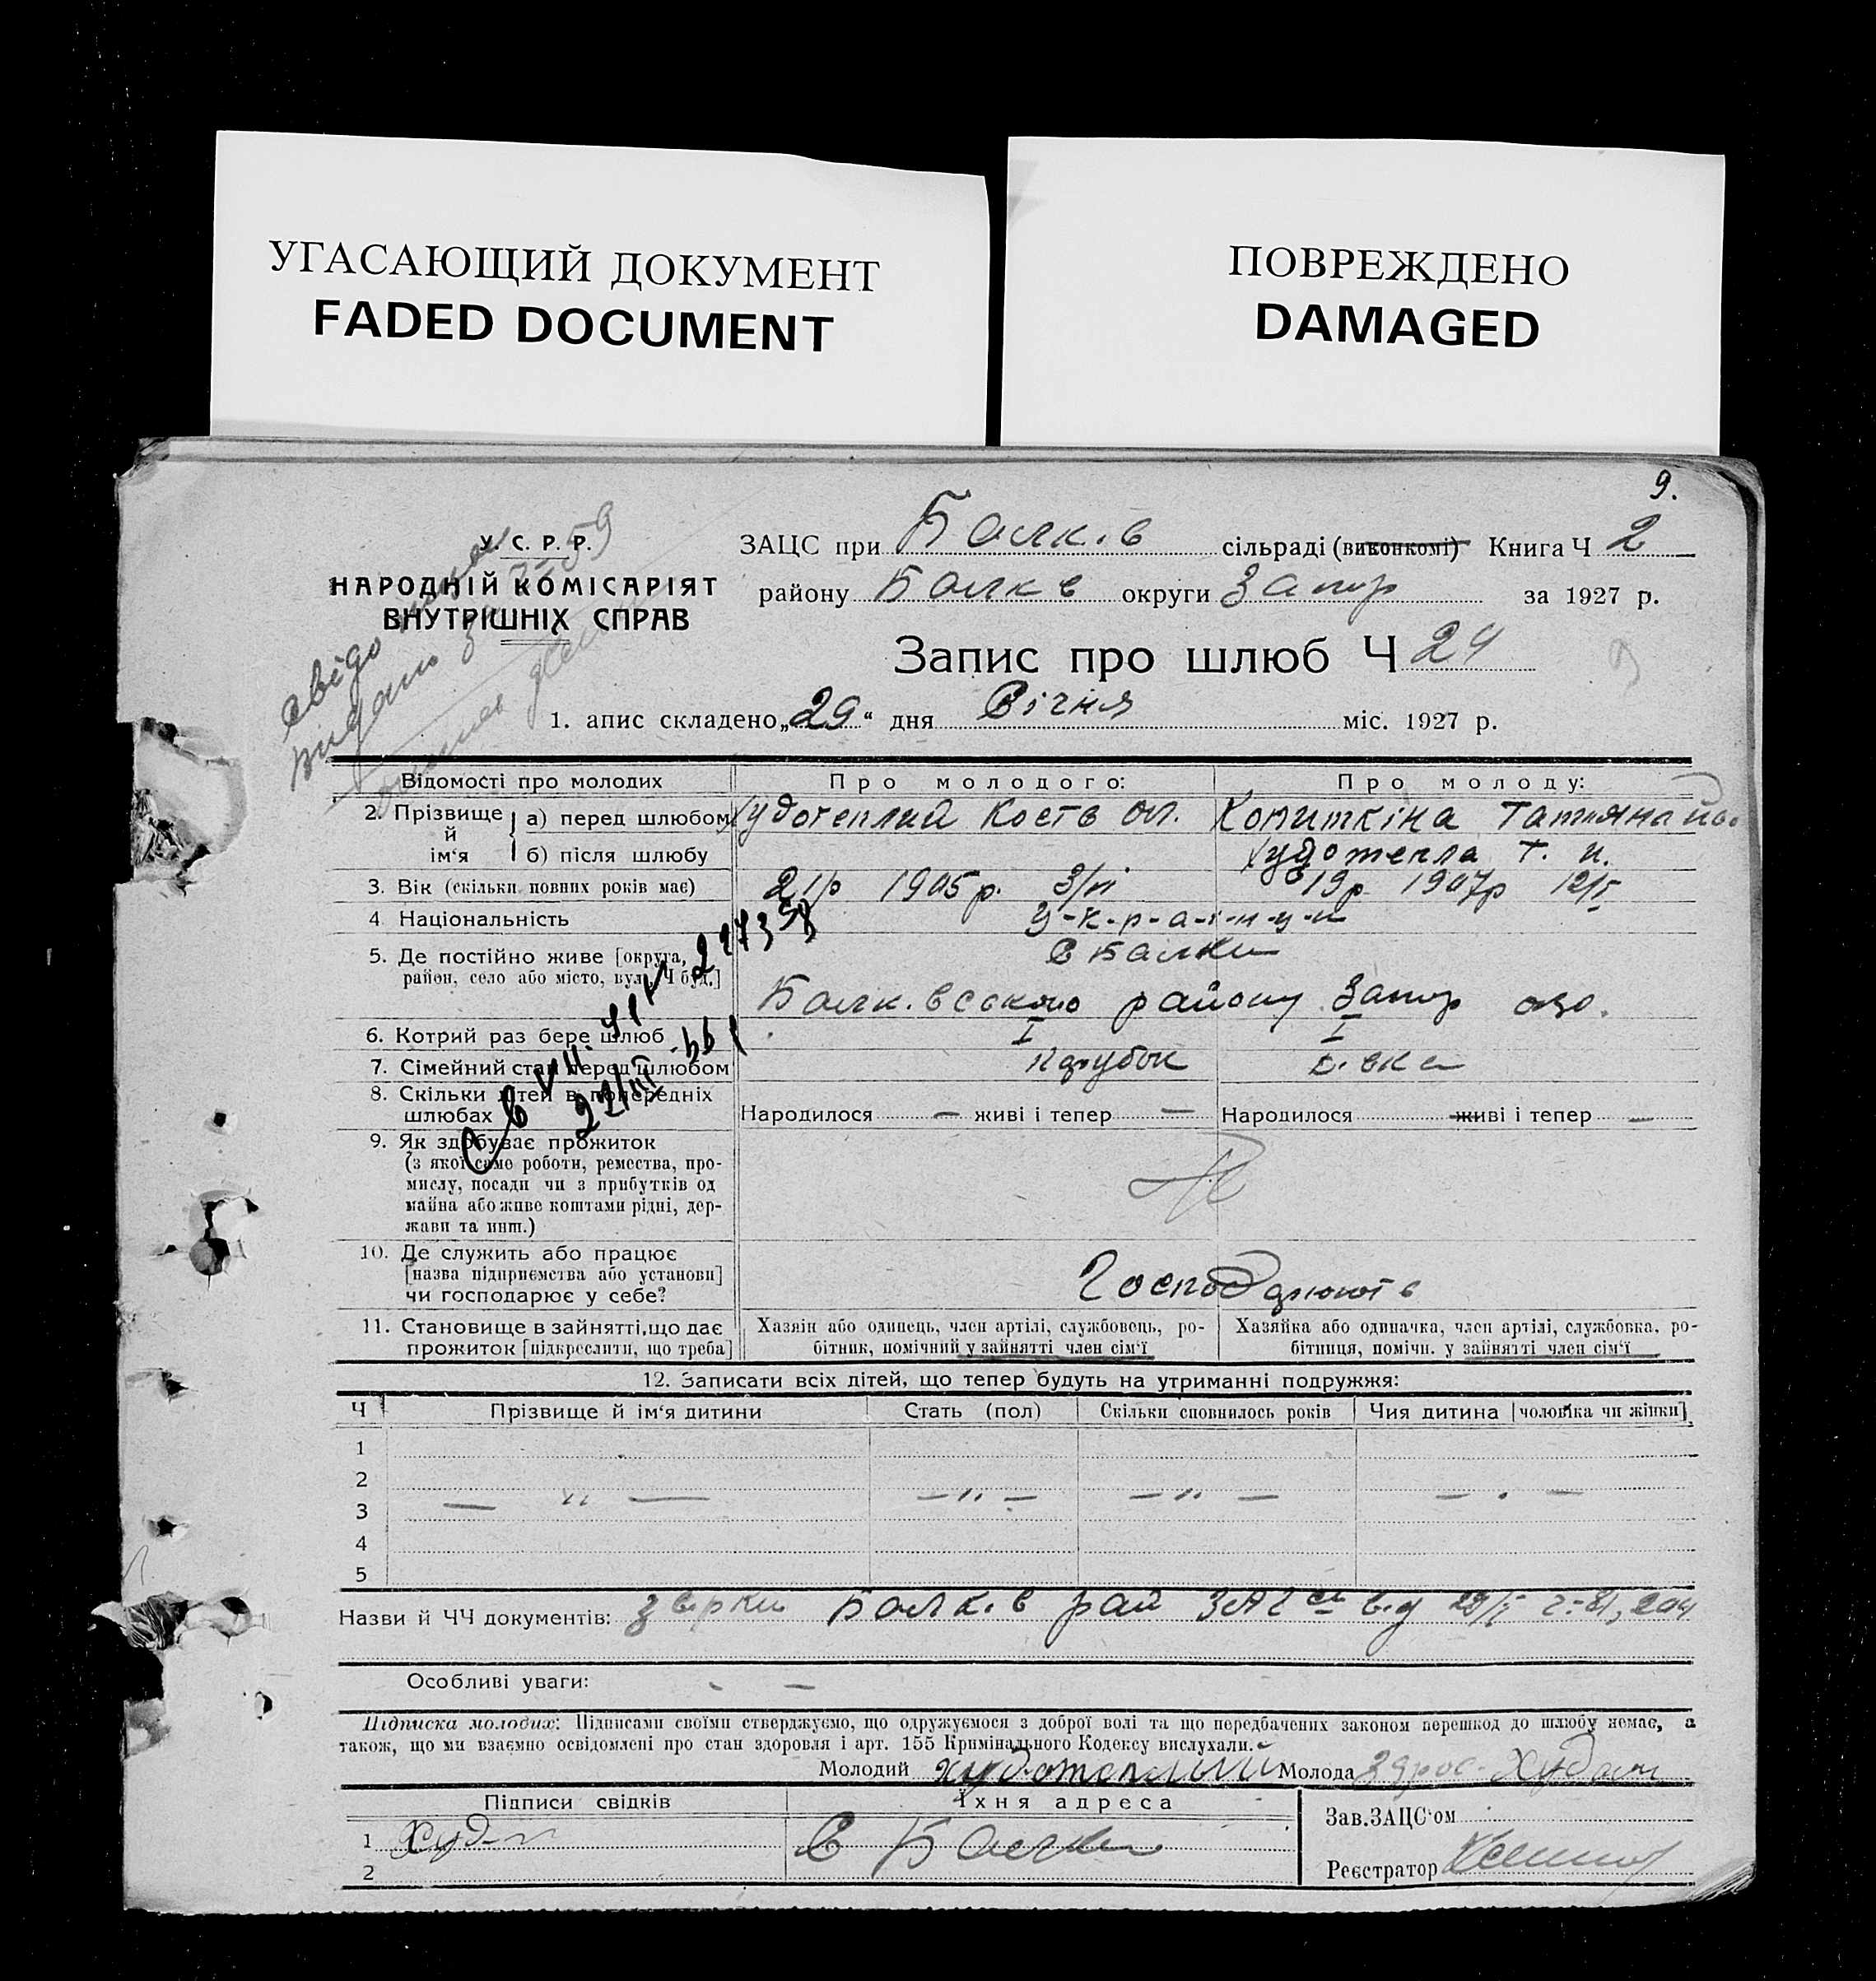 УГАСАЮЩИЙ ДОКУМЕНТ
FADED DOCUMENT
ПОВРЕЖДЕНО
DAMAGED
9.
У. С. Р. Р.
НАРОДНІЙ КОМІСАРІЯТ
ВНУТРІШНІХ СПРАВ
ЗАЦС при Балків сільраді (виконкомі) Книга Ч 2
району Балків округи Запор за 1927 р.
Запис про шлюб Ч 24
1. апис складено „29“ дня Січня міс. 1927 р.
Відомості про молодих Про молодого: Про молоду:
2. Прізвище й ім‘я а) перед шлюбом Худотеплий Кость Ол. Копиткіна Татяна
б) після шлюбу Худотепла Т. И.
3. Вік (скільки повних років має) 21р 1905 р. 3/VI 19р 1907р 12/I
4 Національність У-к-р-а-ї-н-ц-и
5. Де постійно живе [округа, район, село або місто, вул., Ч буд.] С Балки
Балківського району Запор
6. Котрий раз бере шлюб I I
7. Сімейний стан перед шлюбом парубок дівка
8. Скільки дітей в попередніх шлюбах Народилося — живі і тепер — Народилося — живі і тепер —
9. Як здобуває прожиток
(з якої саме роботи, ремества, про-
мислу, посади чи з прибутків од
майна або живе коштами рідні, дер-
жави та инш.)
10. Де служить або працює
[назва підприємства або установи]
чи господарює у себе? Господарюють
11. Становище в зайнятті, що дає
прожиток [підкреслити, що треба]
Хазяїн або одинець, член артілі, службовець, ро-
бітник, помічний у зайнятті член сім‘ї
Хазяйка або одиначка, член артілі, службовка, ро-
бітниця, помічн. у зайнятті член сім‘ї
12. Записати всіх дітей, що тепер будуть на утриманні подружжя:
Ч Прізвище й ім‘я дитини Стать (пол) Скільки сповнилось років Чия дитина [чоловіка чи жінки]
1
2
3 — " — — " — — " — — " —
4
5
Назви й ЧЧ документів: Балків рай ЗАГС від 29/I 81, 204
Особливі уваги: —
Підписка молодих: Підписами своїми стверджуємо, що одружуємося з доброї волі та що передбачених законом перешкод до шлюбу немає, а
також, що ми взаємно освідомлені про стан здоровля і арт. 155 Кримінального Кодексу вислухали.
Молодий Худотеплый Молода
Підписи свідків Їхня адреса Зав. ЗАЦС‘ом
1 С Балки
2 Реєстратор